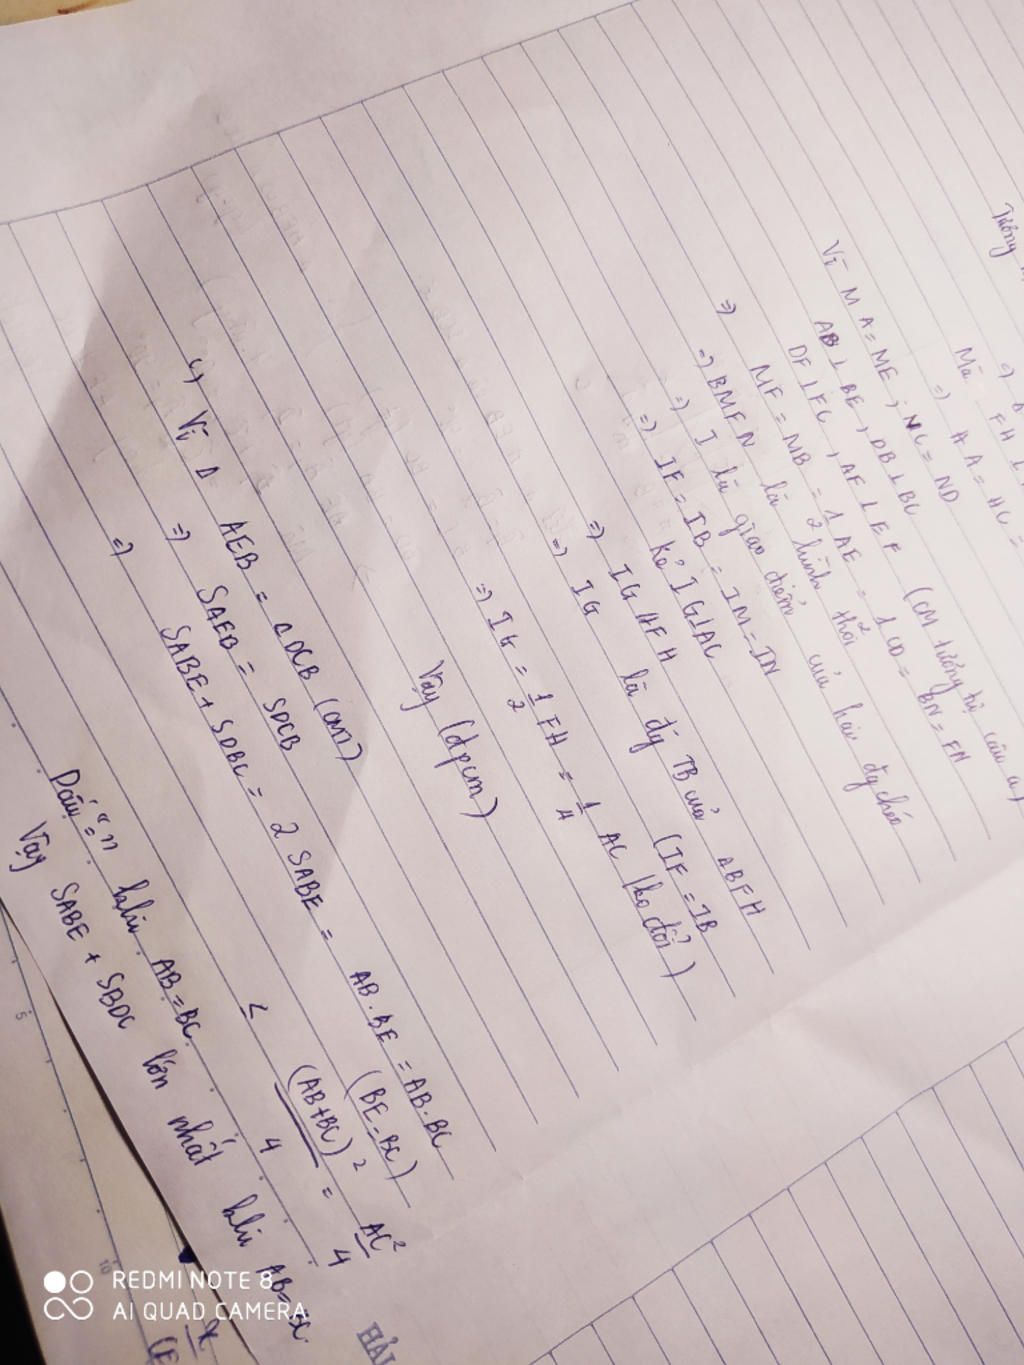 Tương
=> Δ
Mà FH ⊥
=> HA = HC =
Vì MA = ME ; NC = ND
AB ⊥ BE, DB ⊥ BC
DF ⊥ FC, AF ⊥ EF (CM tương tự câu a)
=> MF = MB = 1/2 AE = 1/2 CD = BN = FN
=> BMFN là hình thoi
=> I là giao điểm của hai đg chéo
=> IF = IB = IM = IN
Kẻ IG ⊥ AC
=> IG // FH
=> IG là đg TB của ABFH
(IF = IB
=> IG = 1/2 FH = 1/4 AC (ko đổi)
Vậy (đpcm)
c, Vì Δ AEB = Δ DCB (CMT)
=> SAEB = SDCB
=> SABE + SDBC = 2 SABE = AB . BE = AB . BC
(BE = BC)
≤ (AB+BC)² / 4 = AC² / 4
Dấu "=" khi AB = BC
Vậy SABE + SBDC lớn nhất khi AB = BC.
REDMI NOTE 8
AI QUAD CAMERA